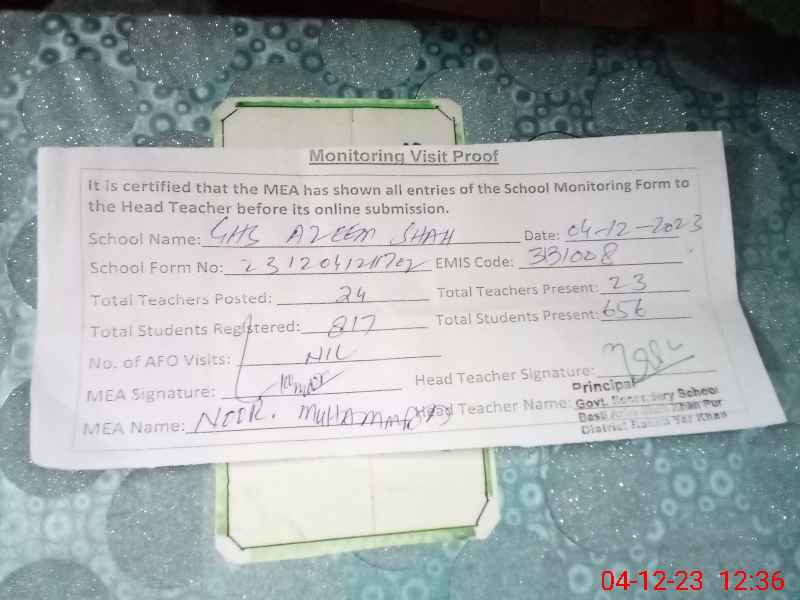 Monitoring Visit Proof
It is certified that the MEA has shown all entries of the School Monitoring Form to
the Head Teacher before its online submission.
School Name: GHS AZEEM SHAH Date: 04-12-2023
School Form No: EMIS Code: 331008
Total Teachers Posted: 24 Total Teachers Present: 23
Total Students Registered: 817 Total Students Present: 656
No. of AFO Visits: NIL
MEA Signature: Head Teacher Signature:
MEA Name: NOOR. MUHAMMAD Head Teacher Name:
Principal
Govt. Secondary School
Khan Pur
District Rahim Yar Khan
04-12-23 12:36